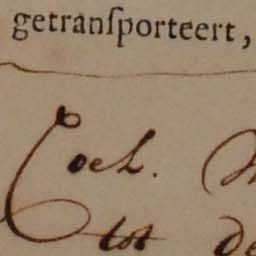 getranſporteert,
Coel.
tot de